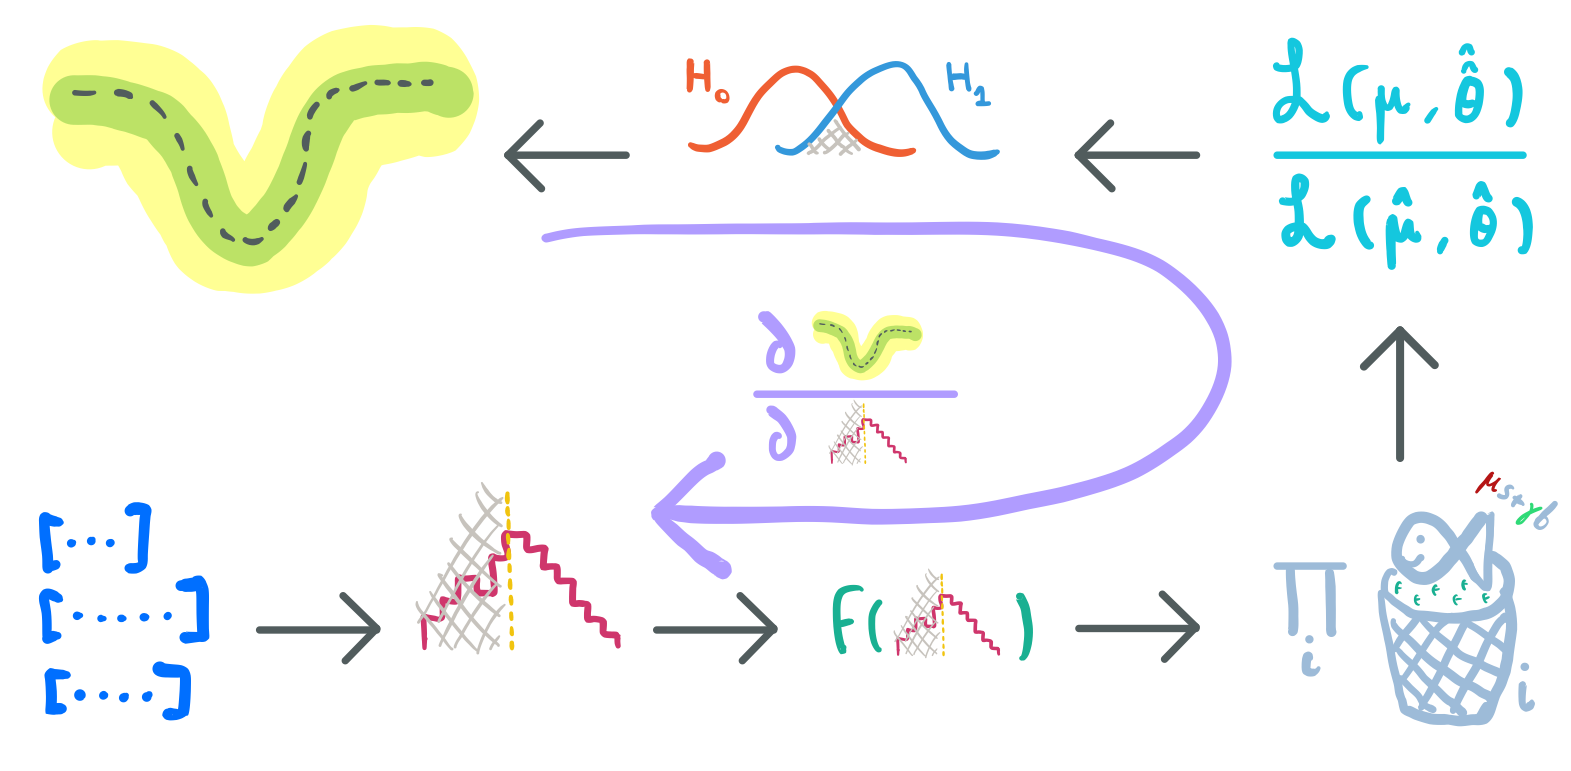 H₀ H₁
ℒ(μ, θ̂̂)
ℒ(μ̂, θ̂)
∂
∂
[...]
[.....]
[....]
F( )
∏
i
μs+γb
F F F F F F
i